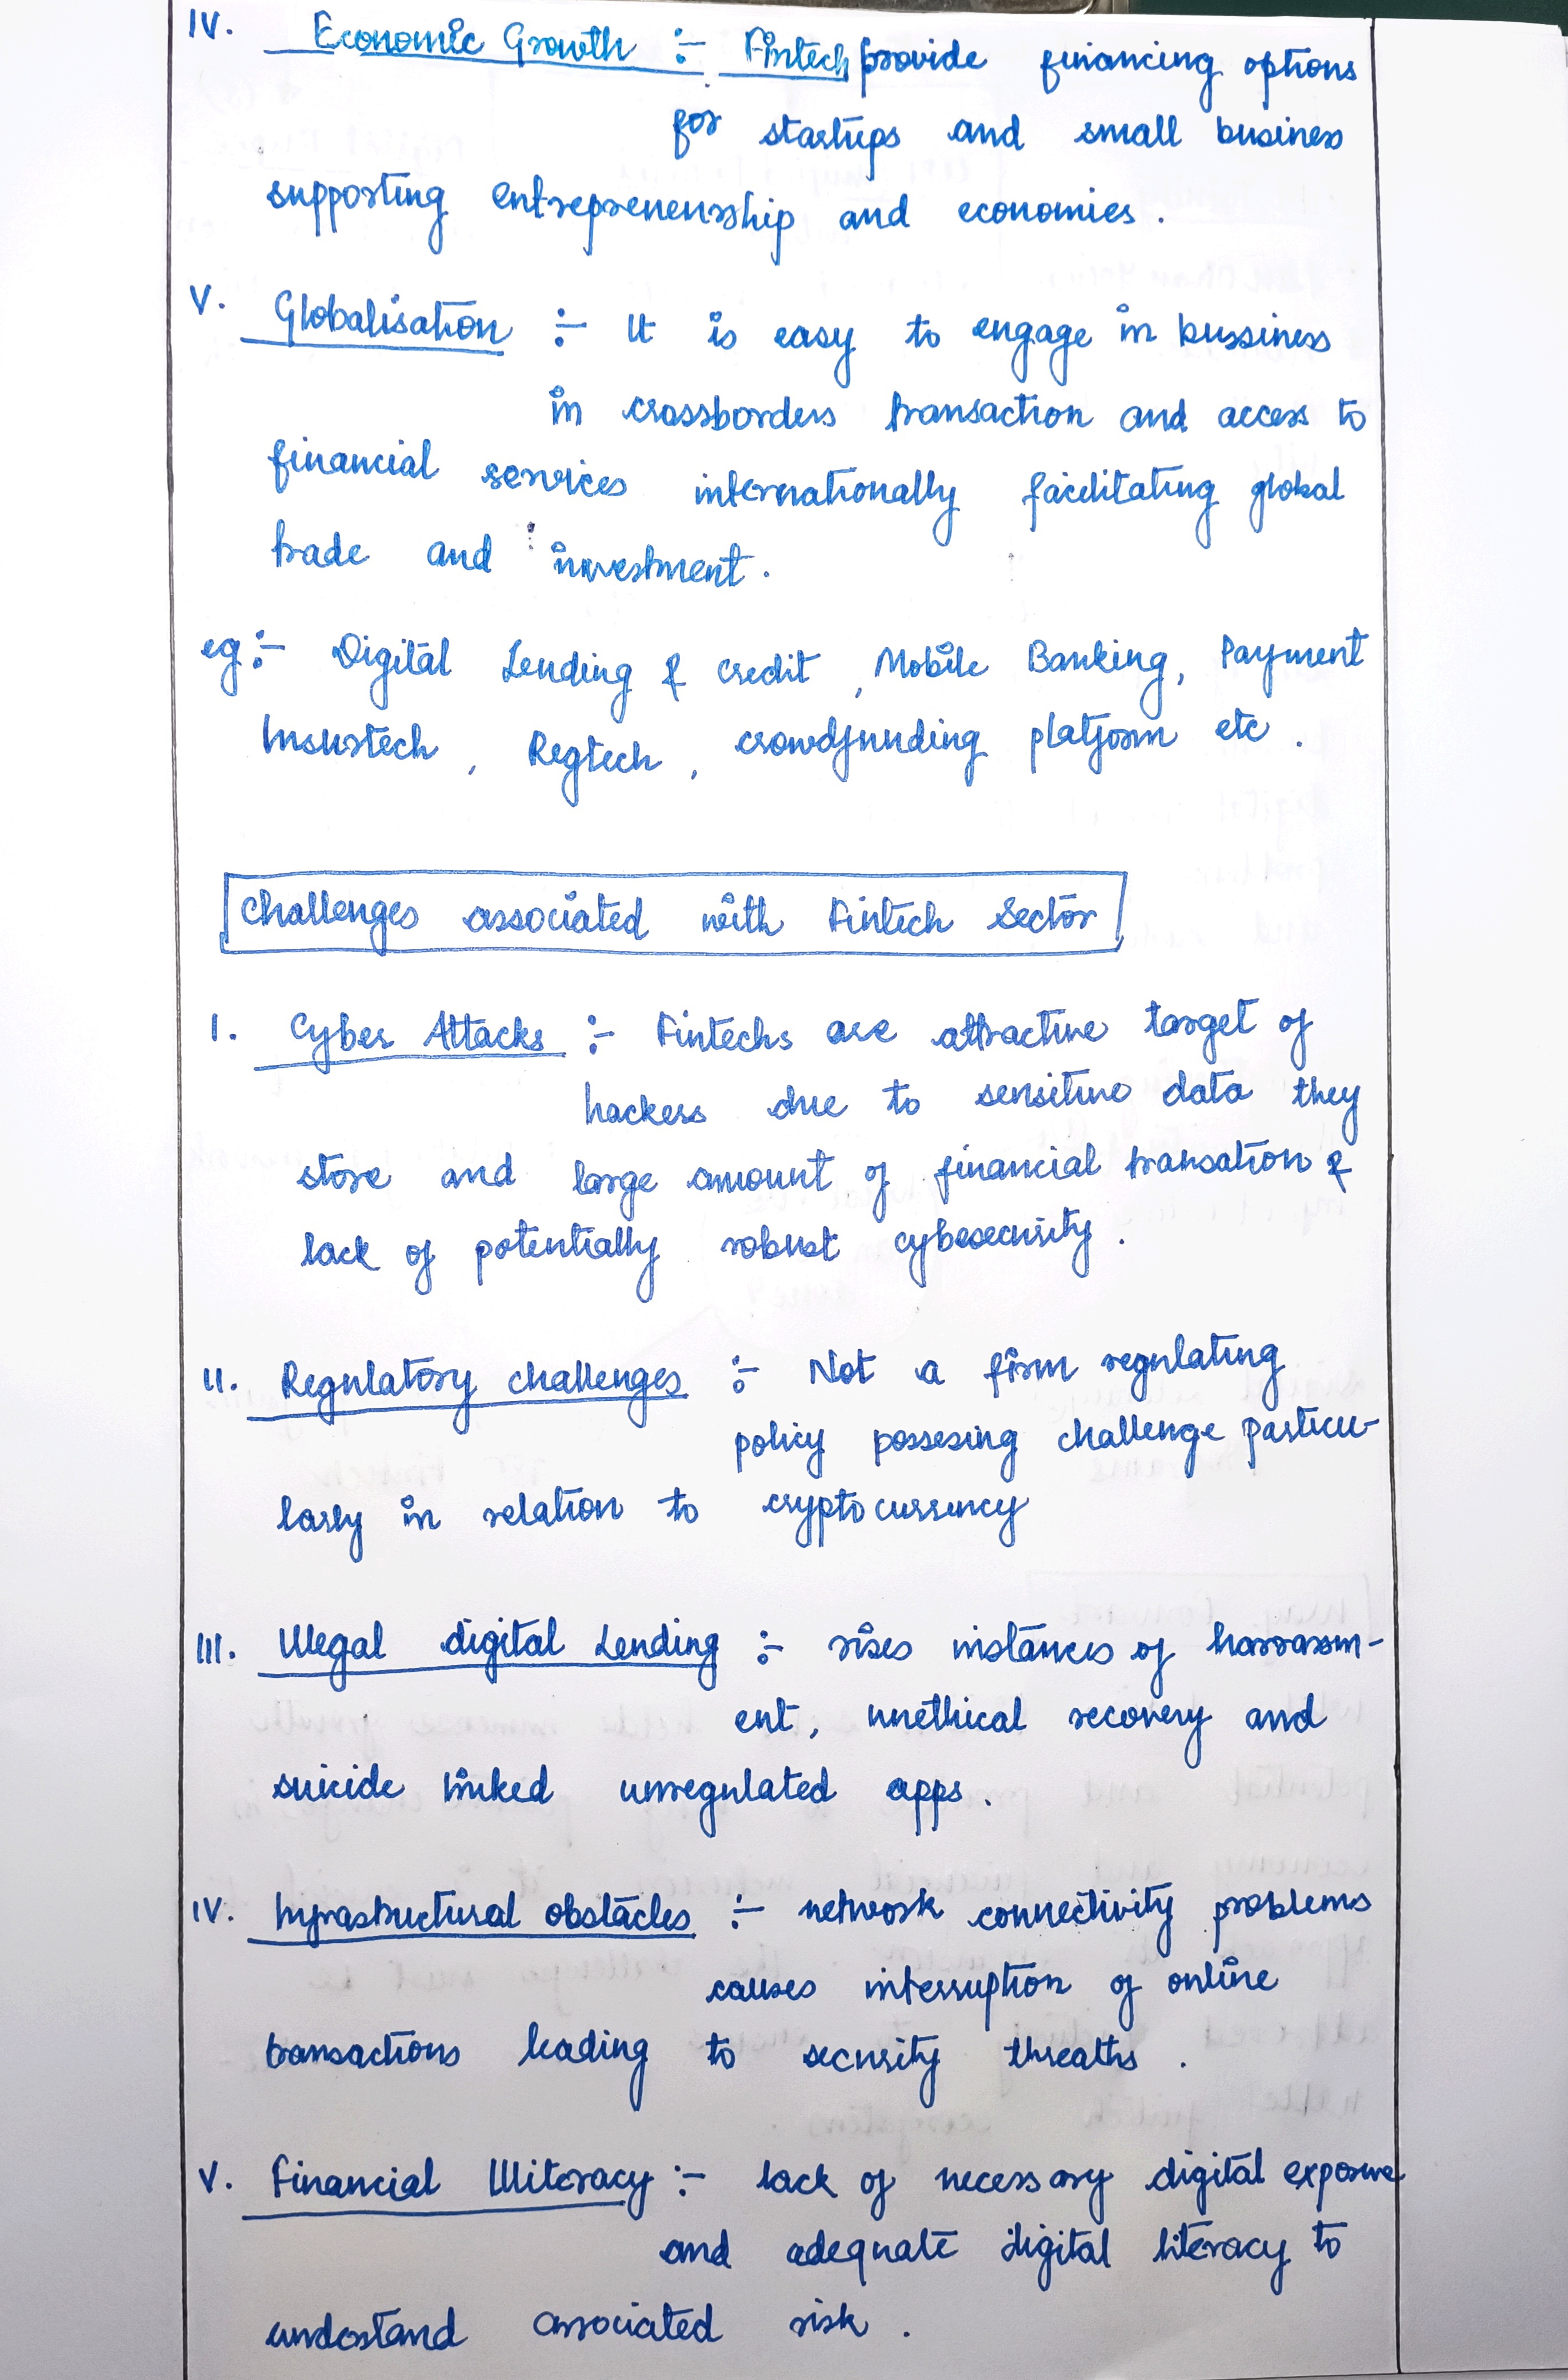 IV. Economic Growth :- Fintech provide financing options
for startups and small business
supporting entrepreneurship and economies.
V. Globalisation :- It is easy to engage in bussiness
in crossborders transaction and access to
financial services internationally facilitating global
trade and investment.
eg:- Digital Lending & credit, Mobile Banking, Payment
Insurtech, Regtech, crowdfunding platform etc.
Challenges associated with Fintech Sector
I. Cyber Attacks :- Fintechs are attractive target of
hackers due to sensitive data they
store and large amount of financial transation &
lack of potentially robust cybesecurity.
II. Regulatory challenges :- Not a firm regulating
policy possesing challenge particu-
larly in relation to cryptocurrency
III. Illegal digital Lending :- rises instances of harrasm-
ent, unethical recovery and
suicide linked unregulated apps.
IV. Infrastructural obstacles :- network connectivity problems
causes interruption of online
transactions leading to security threaths.
V. Financial Illiteracy :- lack of necessary digital exposure
and adequate digital literacy to
understand associated risk.